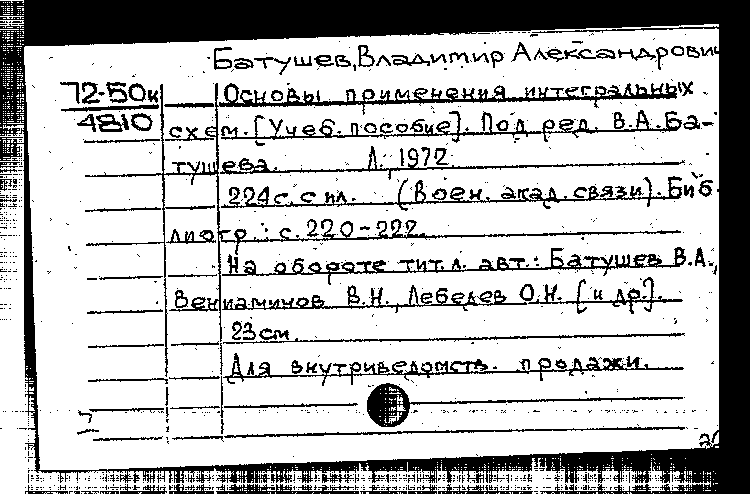 Батушев, Владимир Александрович
72-50к
4810
Основы применения интегральных
схем. [Учеб. пособие]. Под ред. В.А. Ба-
тушева. Л., 1972.
224 с. с ил. (Воен. акад. связи). Биб-
лиогр.: с. 220-222.
На обороте тит. л. авт.: Батушев В.А.,
Вениаминов В.Н., Лебедев О.Н. [и др.].
23 см.
Для внутриведомств. продажи.